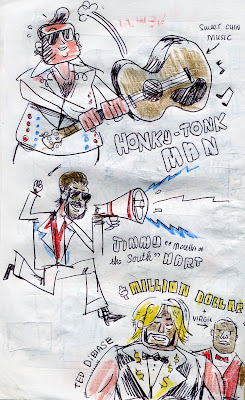 SWEET CHIN
MUSIC
HONKY-TONK
MAN
JIMMY "MOUTH OF
the SOUTH" HART
$ MILLION DOLLAR
+ VIRGIL
TED DIBIASE